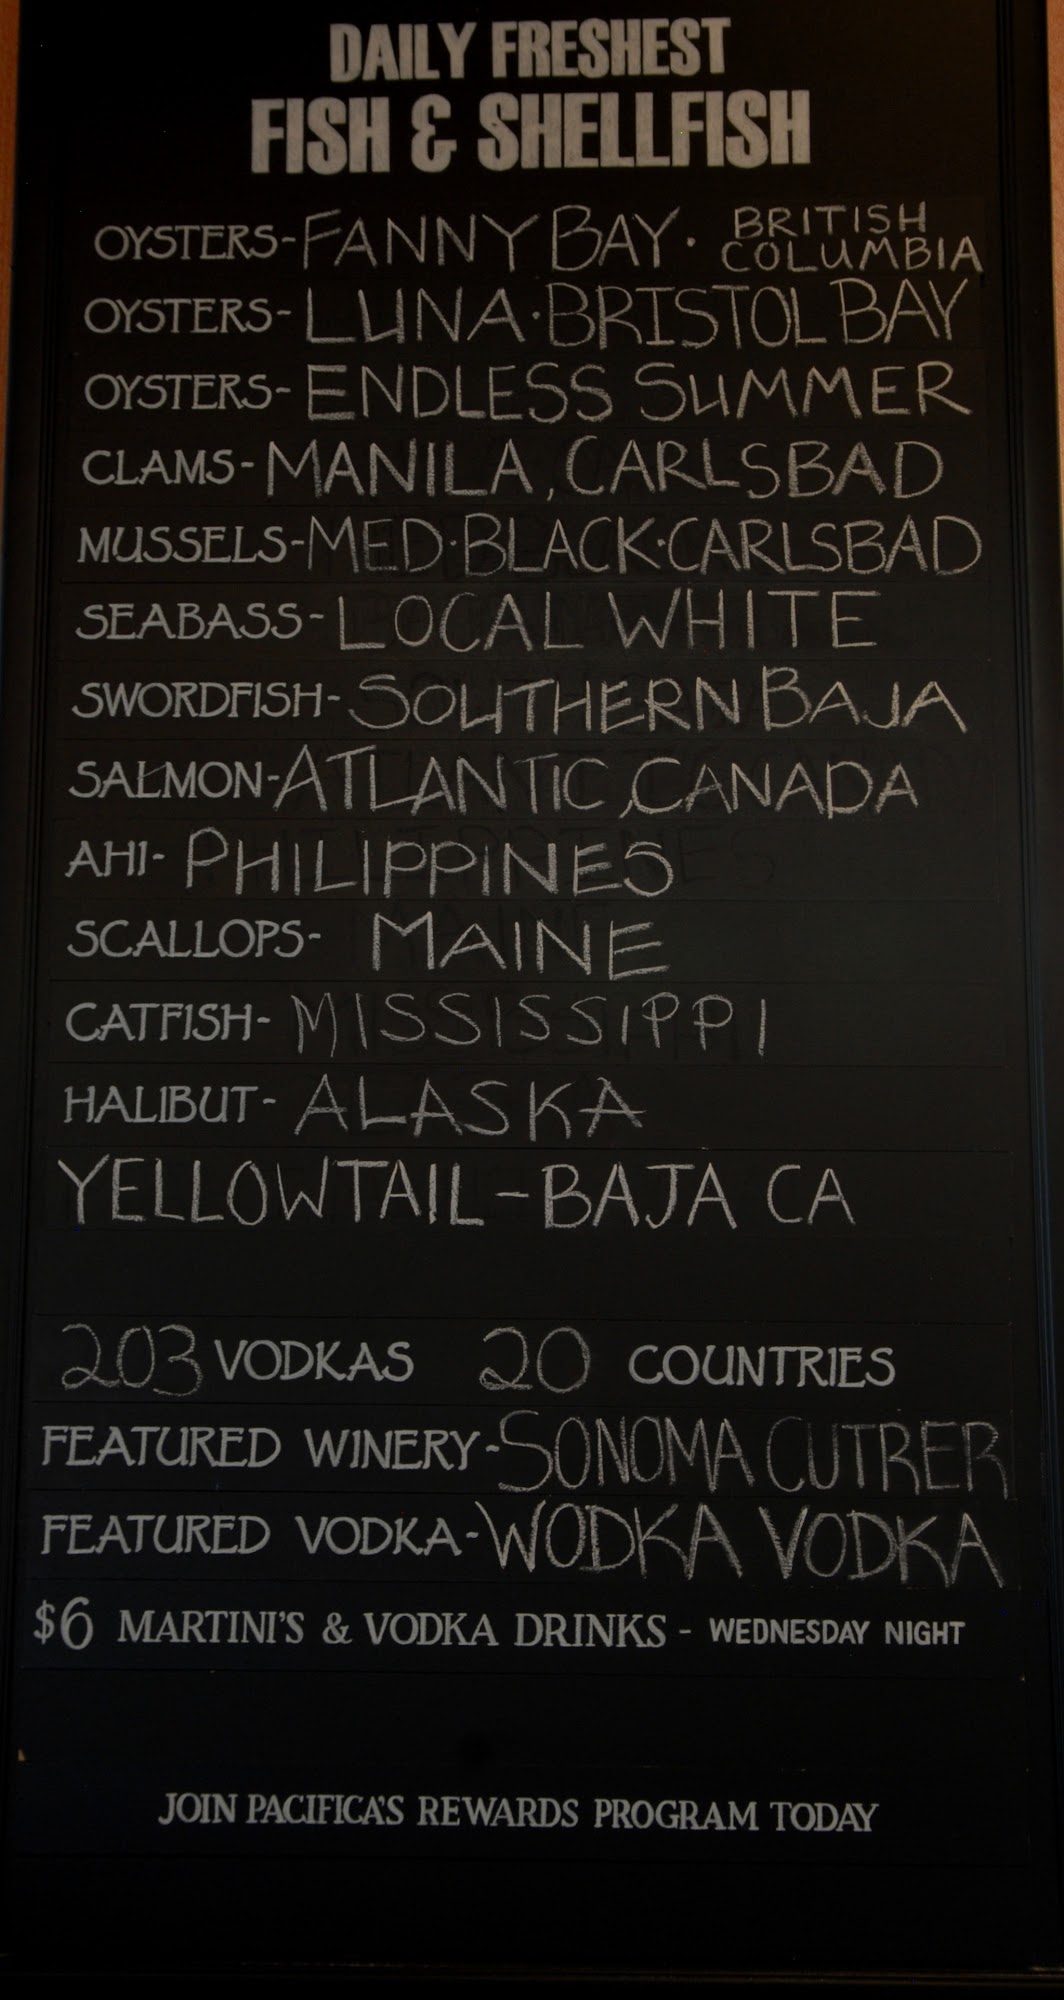 DAILY FRESHEST
FISH & SHELLFISH
OYSTERS- FANNY BAY · BRITISH COLUMBIA
OYSTERS- LUNA · BRISTOL BAY
OYSTERS- ENDLESS SUMMER
CLAMS- MANILA, CARLSBAD
MUSSELS- MED · BLACK · CARLSBAD
SEABASS- LOCAL WHITE
SWORDFISH- SOUTHERN BAJA
SALMON- ATLANTIC, CANADA
AHI- PHILIPPINES
SCALLOPS- MAINE
CATFISH- MISSISSIPPI
HALIBUT- ALASKA
YELLOWTAIL - BAJA CA
203 VODKAS 20 COUNTRIES
FEATURED WINERY- SONOMA CUTRER
FEATURED VODKA- WODKA VODKA
$6 MARTINI'S & VODKA DRINKS - WEDNESDAY NIGHT
JOIN PACIFICA'S REWARDS PROGRAM TODAY